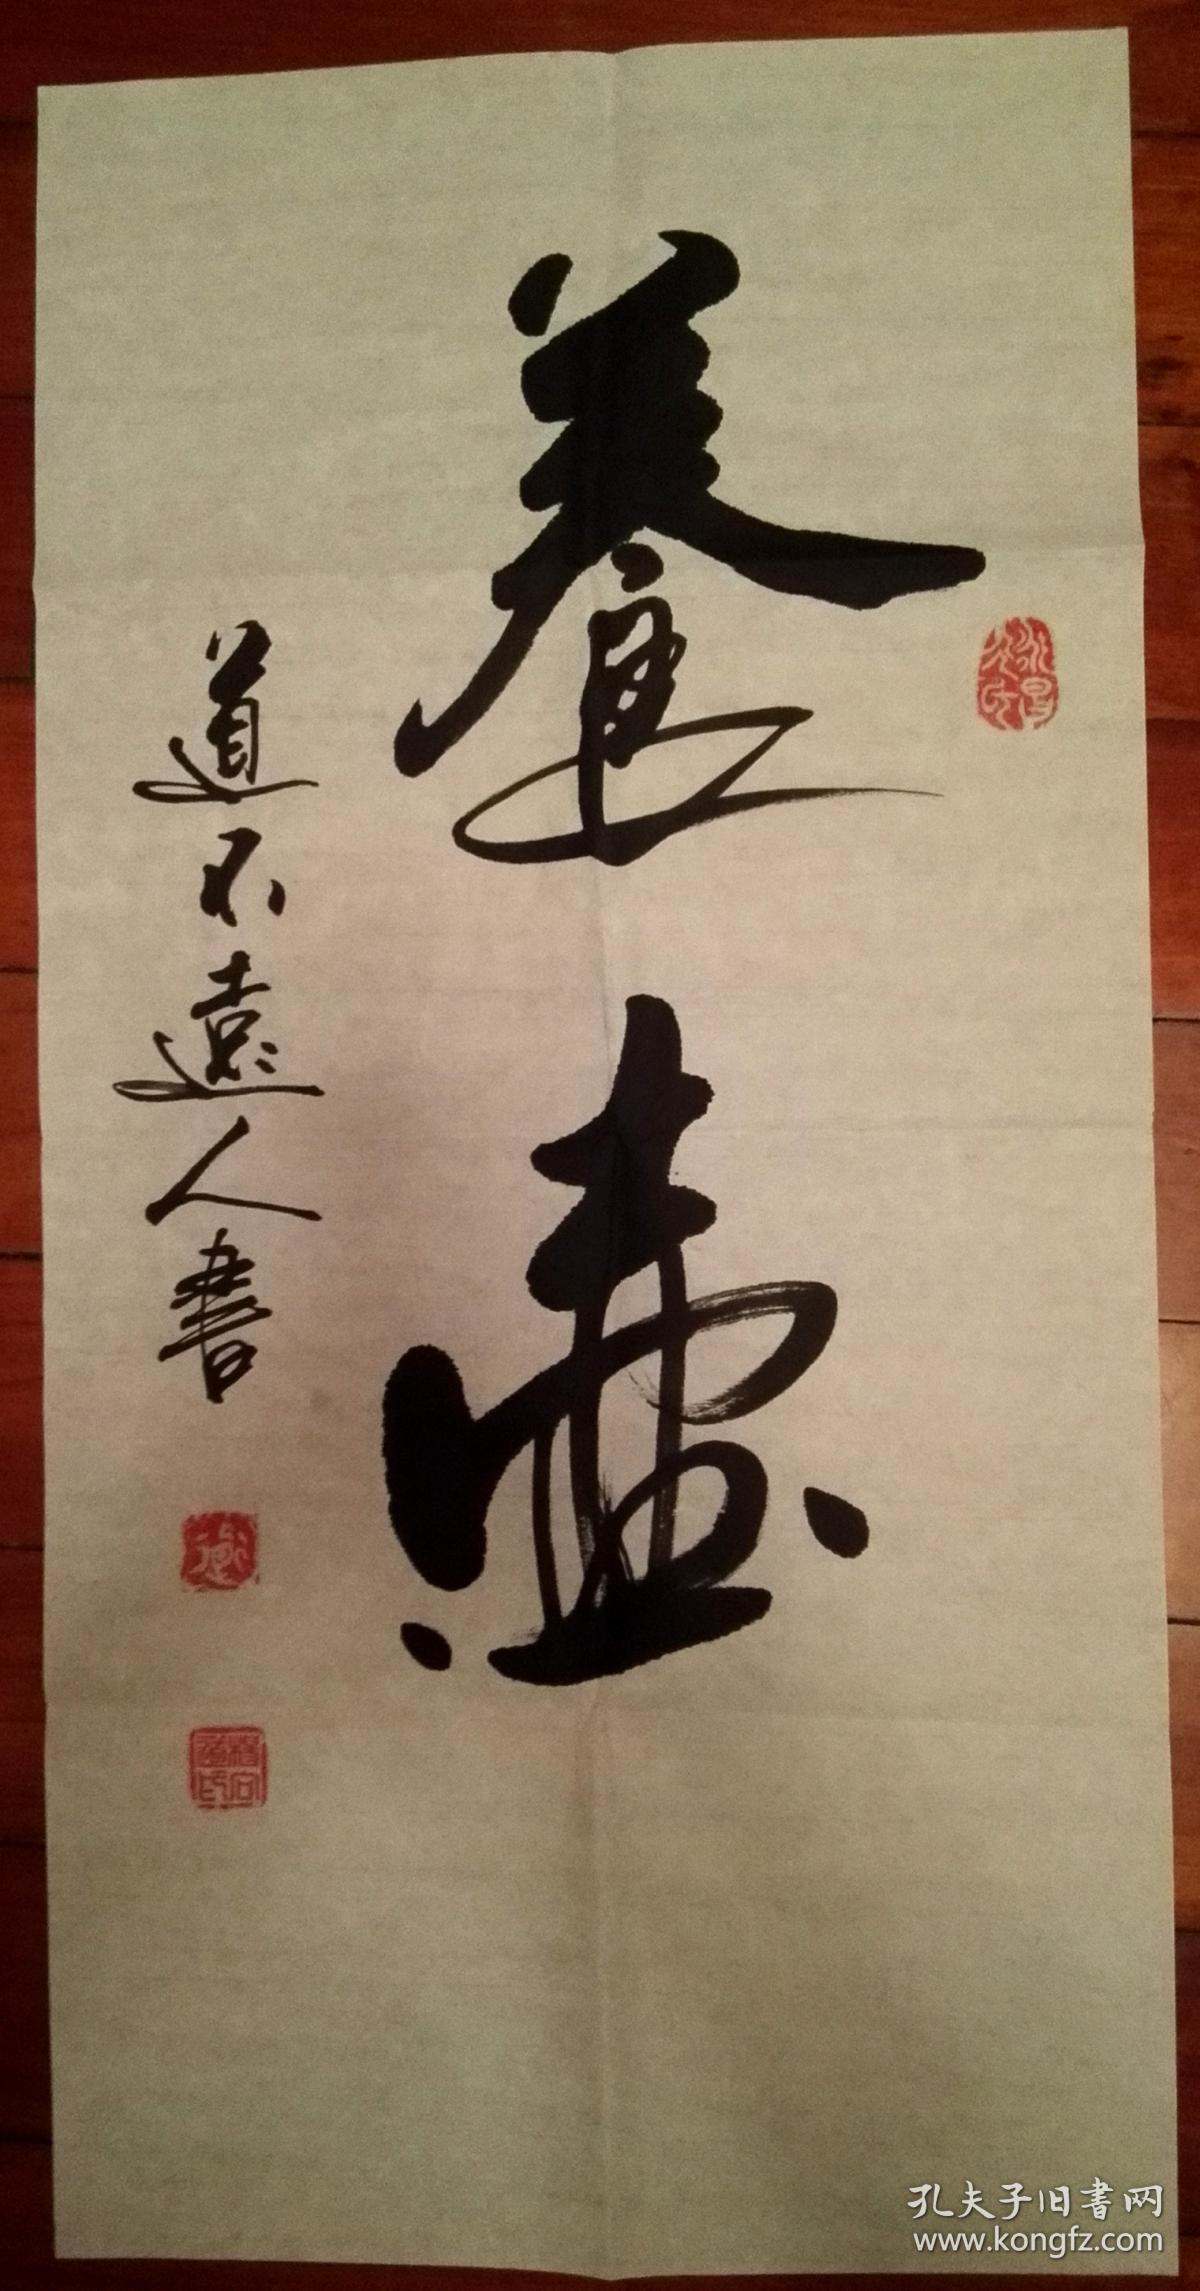 養壺
道不遠人書
孔夫子旧書网
www.kongfz.com